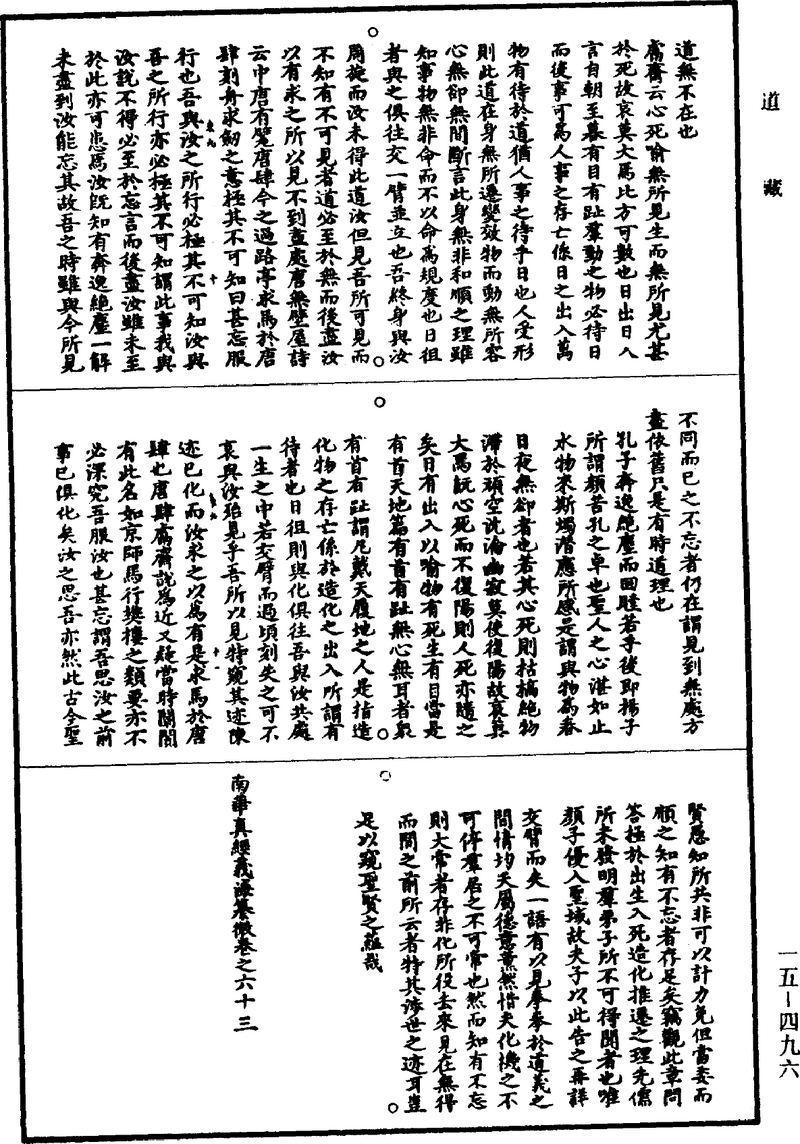 道藏
道無不在也
鬳齋云心死喻無所見生而無所見尤甚
於死故哀莫大焉比方可數也日出日入
言自朝至暮有目有趾羣動之物必待日
而後事可為人事之存亡係日之出入萬
物有待於道猶人事之待乎日也人受形
則此道在身無所遷變效物而動無所容
心無郤無間斷言此身無非和順之理雖
知事物無非命而不以命為規度也日徂
者與之俱往交一臂並立也吾終身與汝
周旋而汝未得此道汝但見吾所可見而
不知有不可見者道必至於無而後盡汝
以有求之所以見不到盡處唐無壁屋詩
云中唐有甓唐肆今之過路亭求馬於唐
肆刻舟求劒之意極其不可知曰甚忘服
行也吾與汝之所行必極其不可知汝與
吾之所行亦必極其不可知謂此事我與
汝說不得必至於忘言而後盡汝雖未至
於此亦可患焉汝既知有奔逸絕塵一解
未盡到汝能忘其故吾之時雖與今所見
不同而已之不忘者仍在謂見到無處方
盡依舊只是有時道理也
孔子奔逸絕塵而回瞠若乎後即揚子
所謂顏苦孔之卓也聖人之心湛如止
水物來斯燭潛應所感是謂與物為春
日夜無郤者也若其心死則枯槁絕物
滯於頑空沈淪幽寂莫使復陽故哀莫
大焉旣心死而不復陽則人死亦隨之
矣日有出入以喻物有死生有目當是
有首天地篇有首有趾無心無耳者眾
有首有趾謂凡戴天履地之人是指造
化物之存亡係於造化之出入所謂有
待者也日徂則與化俱往吾與汝共處
一生之中若交臂而過頃刻失之可不
哀與汝殆見乎吾所以見特窺其迹陳
迹已化而汝求之以為有是求馬於唐
肆也唐肆鬳齋說為近又疑當時闤闠
有此名如京師馬行樊樓之類要亦不
必深究吾服汝也甚忘謂吾思汝之前
事已俱化矣汝之思吾亦然此古今聖
賢愚知所共非可以計力免但當委而
順之知有不忘者存是矣竊觀此章問
答極於出生入死造化推遷之理先儒
所未發明羣弟子所不可得聞者也唯
顏子優入聖域故夫子以此告之再詳
交臂而失一語有以見拳拳於道義之
間情均天屬德意薰然惜夫化機之不
可停羣居之不可常也然而知有不忘
則大常者存非化所役去來見在無得
而間之前所云者特其涉世之迹耳豈
足以窺聖賢之蘊哉
南華真經義海纂微卷之六十三
一五-四九六